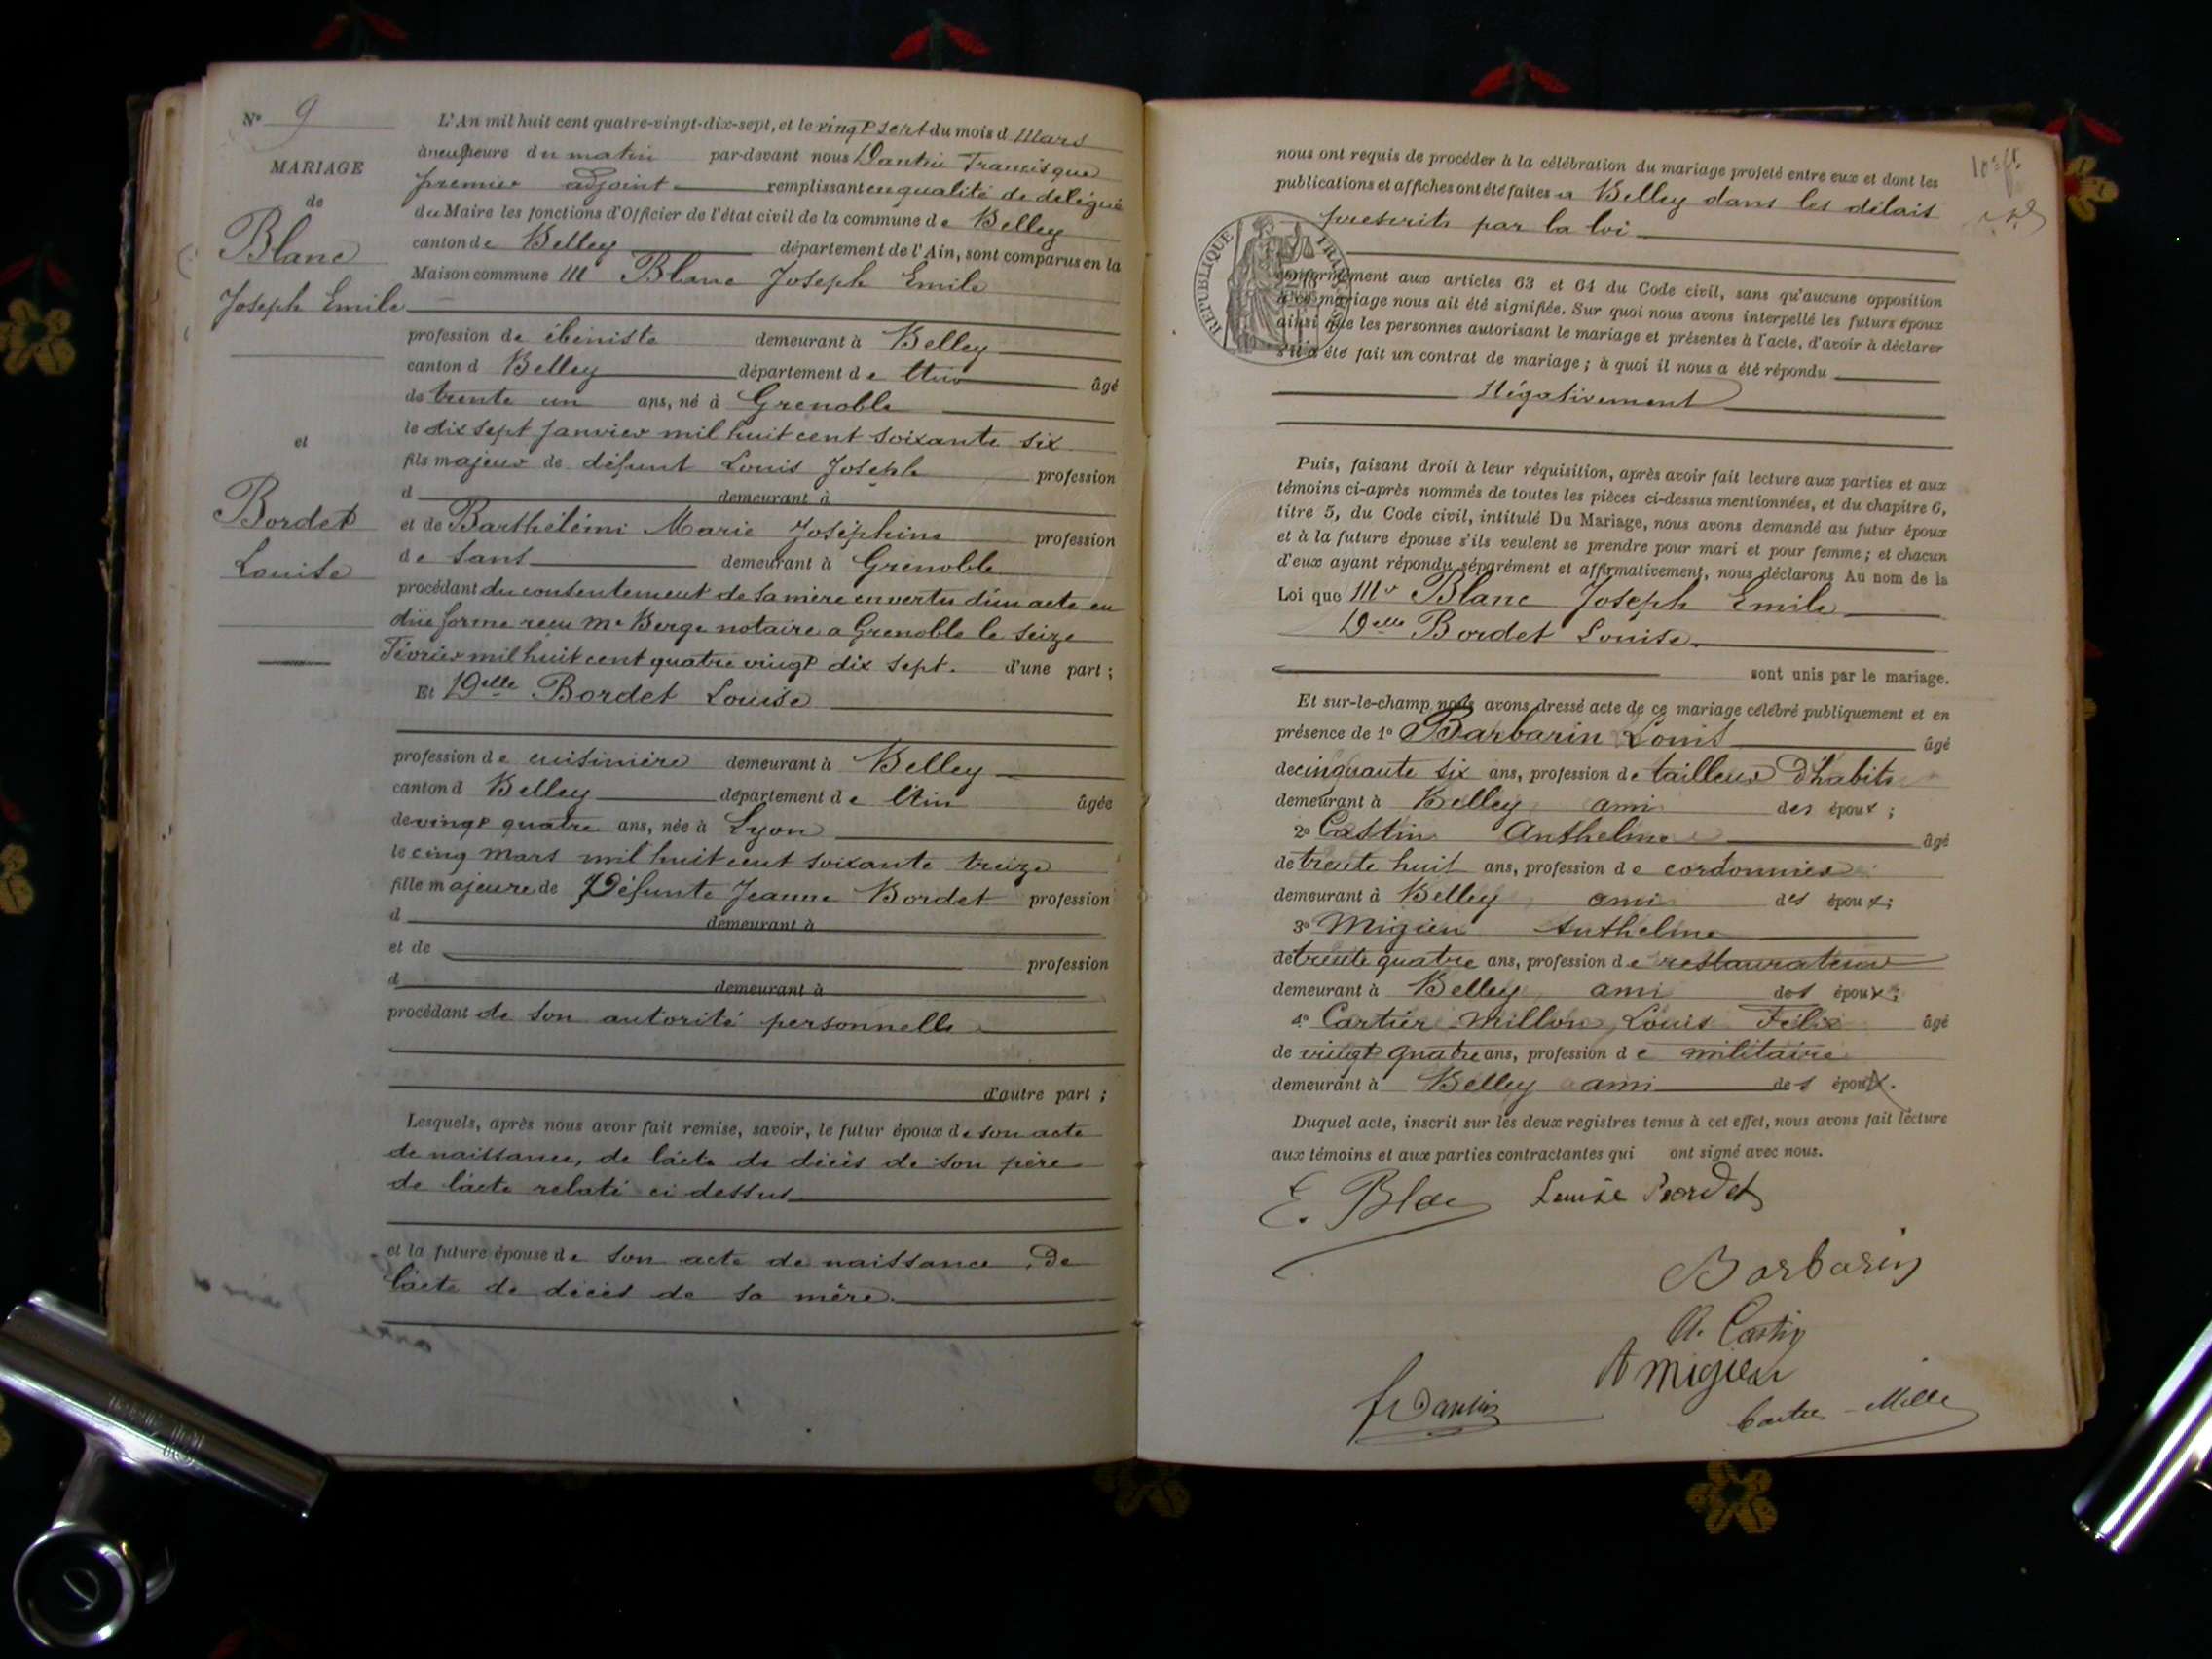 N° 9
MARIAGE
de
Blanc
Joseph Emile
et
Bordet
Louise
L'An mil huit cent quatre-vingt-dix-sept, et le vingt sept du mois d Mars
à neuf heure du matin par-devant nous Dantin Francisque
premier adjoint remplissant en qualité de délégué
du Maire les fonctions d'Officier de l'état civil de la commune de Belley
canton de Belley département de l'Ain, sont comparus en la
Maison commune M Blanc Joseph Emile
profession de ébéniste demeurant à Belley
canton d Belley département de l'Ain âgé
de trente un ans, né à Grenoble
le dix sept janvier mil huit cent soixante six
fils majeur de défunt Louis Joseph profession
d demeurant à
et de Barthélémi Marie Joséphine profession
de sans demeurant à Grenoble
procédant du consentement de sa mère en vertu d'un acte en
dûe forme reçu Me Berge notaire a Grenoble le seize
Février mil huit cent quatre vingt dix sept. d'une part ;
Et Delle Bordet Louise
profession de cuisinière demeurant à Belley
canton d Belley département de l'Ain âgée
de vingt quatre ans, née à Lyon
le cinq Mars mil huit cent soixante treize
fille majeure de Défunte Jeanne Bordet profession
d demeurant à
et de profession
d demeurant à
procédant de son autorité personnelle
d'autre part ;
Lesquels, après nous avoir fait remise, savoir, le futur époux de son acte
de naissance, de l'acte de décès de son père
de l'acte relaté ci dessus
et la future épouse de son acte de naissance, De
l'acte de décès de sa mère.
nous ont requis de procéder à la célébration du mariage projeté entre eux et dont les
publications et affiches ont été faites a Belley dans les délais
prescrits par la loi
RÉPUBLIQUE FRANÇAISE
conformément aux articles 63 et 64 du Code civil, sans qu'aucune opposition
à ce mariage nous ait été signifiée. Sur quoi nous avons interpellé les futurs époux
ainsi que les personnes autorisant le mariage et présentes à l'acte, d'avoir à déclarer
s'il a été fait un contrat de mariage ; à quoi il nous a été répondu
Négativement
Puis, faisant droit à leur réquisition, après avoir fait lecture aux parties et aux
témoins ci-après nommés de toutes les pièces ci-dessus mentionnées, et du chapitre 6,
titre 5, du Code civil, intitulé Du Mariage, nous avons demandé au futur époux
et à la future épouse s'ils veulent se prendre pour mari et pour femme ; et chacun
d'eux ayant répondu séparément et affirmativement, nous déclarons Au nom de la
Loi que Mr Blanc Joseph Emile
Delle Bordet Louise
sont unis par le mariage.
Et sur-le-champ nous avons dressé acte de ce mariage célébré publiquement et en
présence de 1° Barbarin Louis âgé
de cinquante six ans, profession de tailleur d'habits
demeurant à Belley ami des époux ;
2° Castin Anthelme âgé
de trente huit ans, profession de cordonnier
demeurant à Belley ami des époux ;
3° Migieu Anthelme
de trente quatre ans, profession de restaurateur
demeurant à Belley ami des époux ;
4° Cartier Millon Louis Félix âgé
de vingt quatre ans, profession de militaire
demeurant à Belley ami des époux.
Duquel acte, inscrit sur les deux registres tenus à cet effet, nous avons fait lecture
aux témoins et aux parties contractantes qui ont signé avec nous.
E. Blac Louise Bordet
Barbarin
A. Castin
A Migieu
fr Dantin